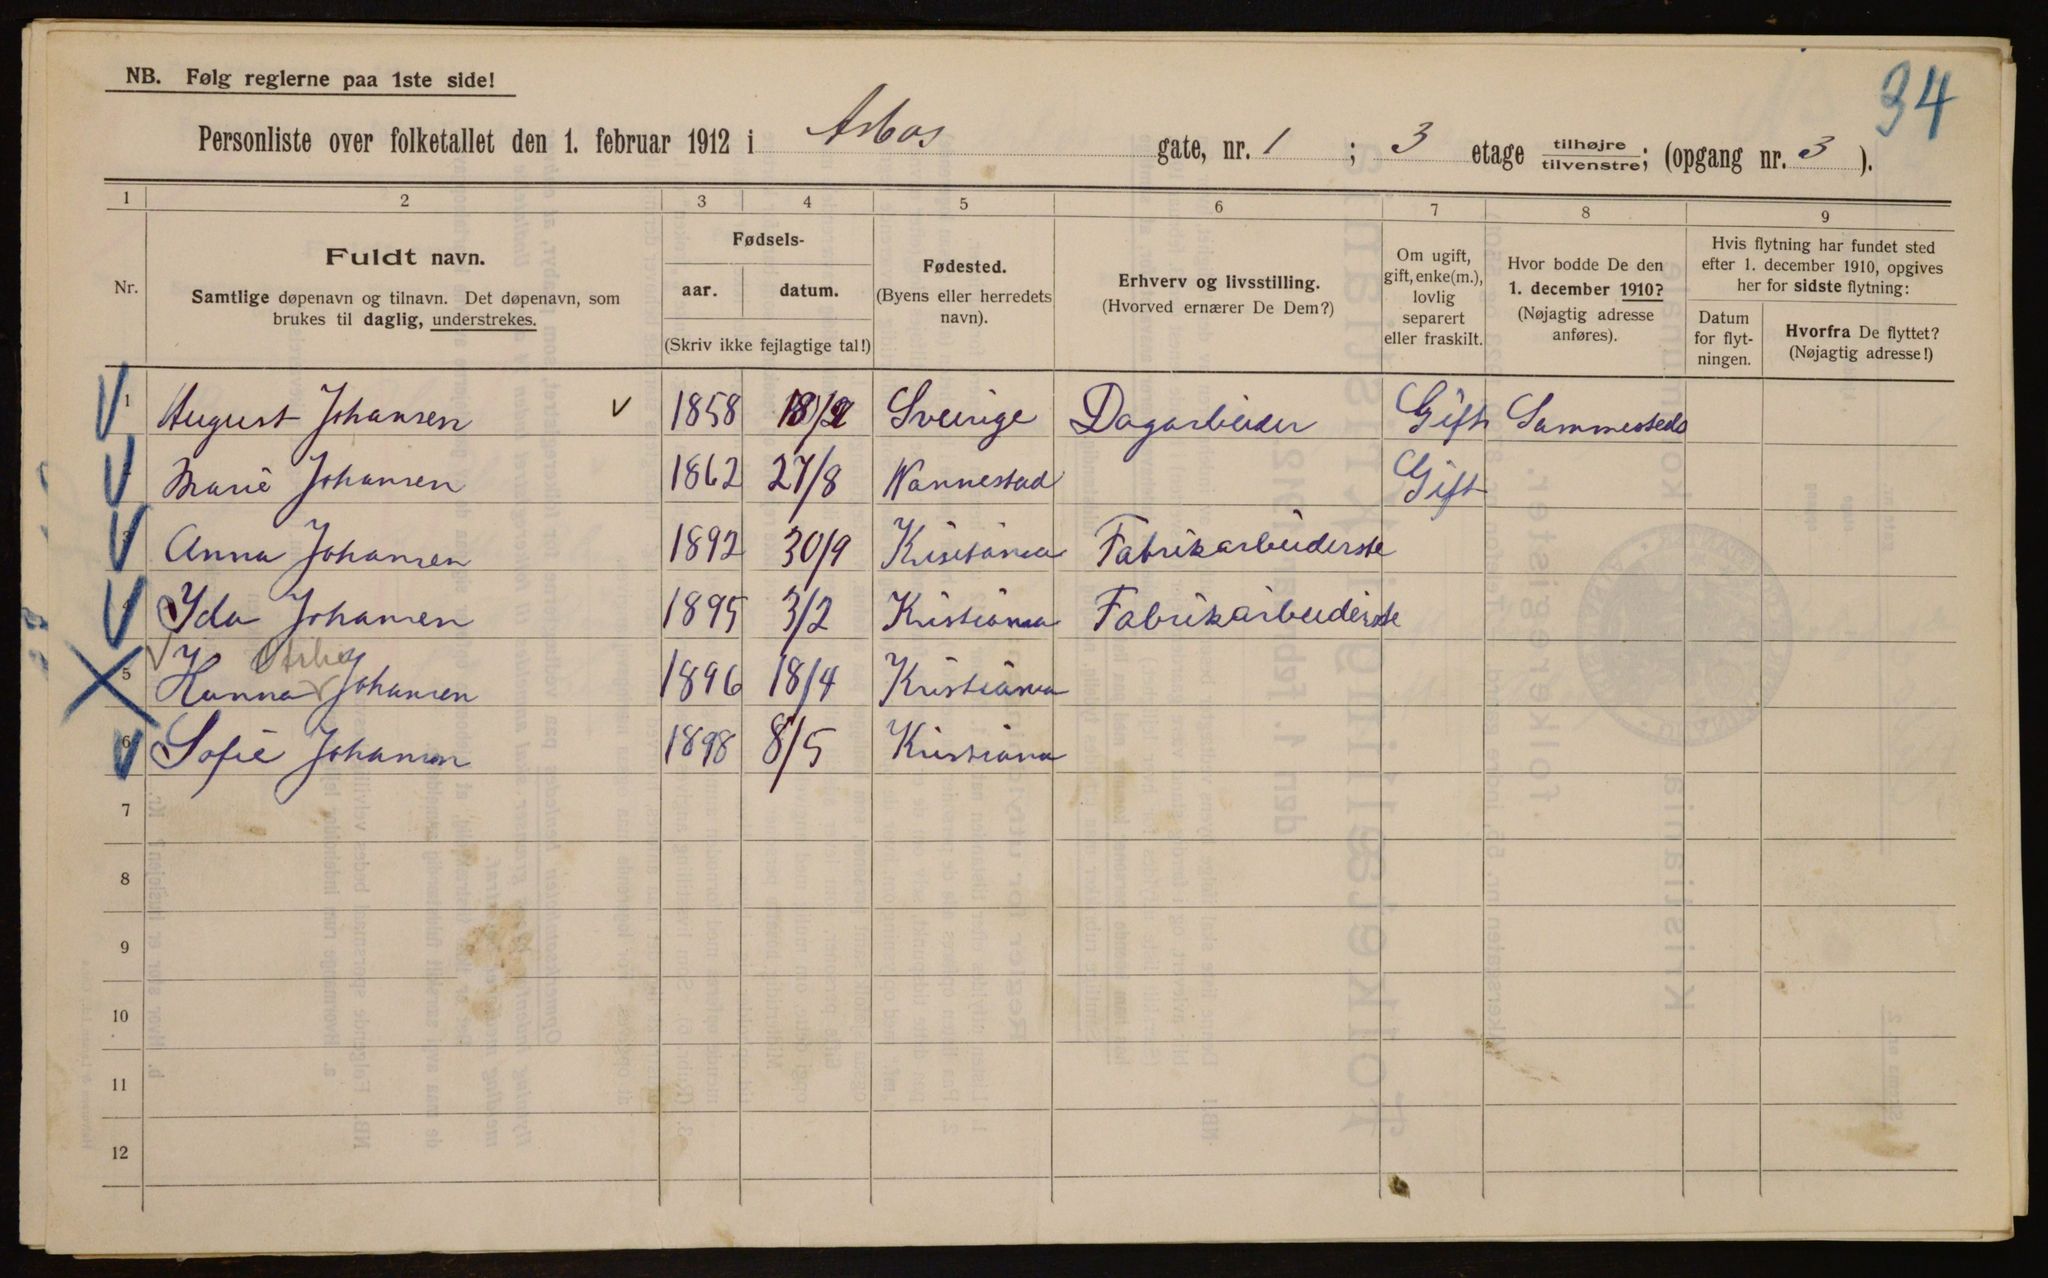 34
NB. Følg reglerne paa 1ste side!
Personliste over folketallet den 1. februar 1912 i Asbos gate, nr. 1 ; 3 etage tilhøjre tilvenstre; (opgang nr. 3 ).
1 2 3 4 5 6 7 8 9
Nr.
Fuldt navn.
Samtlige døpenavn og tilnavn. Det døpenavn, som
brukes til daglig, understrekes.
Fødsels-
aar. datum.
(Skriv ikke fejlagtige tal!)
Fødested.
(Byens eller herredets
navn).
Erhverv og livsstilling.
(Hvorved ernærer De Dem?)
Om ugift,
gift, enke(m.),
lovlig
separert
eller fraskilt.
Hvor bodde De den
1. december 1910?
(Nøjagtig adresse
anføres).
Hvis flytning har fundet sted
efter 1. december 1910, opgives
her for sidste flytning:
Datum
for flyt-
ningen.
Hvorfra De flyttet?
(Nøjagtig adresse!)
1 August Johansen 1858 Sverige Dagarbeider Gift Sammesteds
Marie Johansen 1862 27/8 Nannestad Gift
3 Anna Johansen 1892 30/9 Kristiania Fabrikarbeiderste
4 Yda Johansen 1895 3/2 Kristiania Fabrikarbeiderste
5 Hanna Johansen 1896 18/4 Kristiania
6 Sofie Johansen 1898 8/5 Kristiana
7
8
9
10
11
12